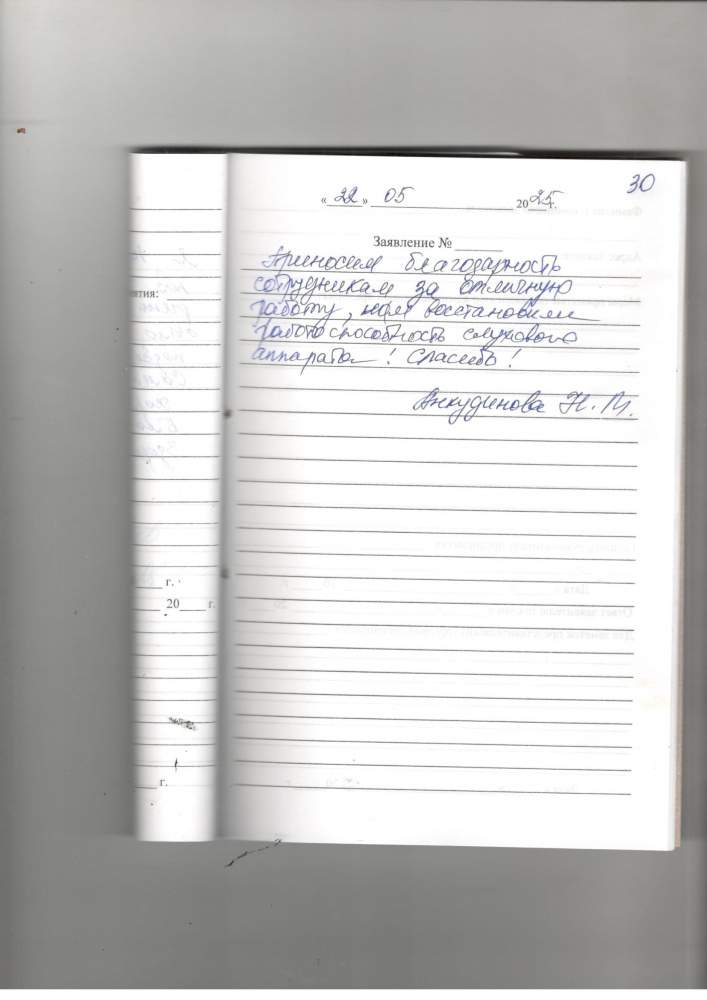 30
«22» 05 2025 г.
Заявление №
Приносим благодарность
сотрудникам за отличную
работу, нам восстановили
работоспособность слухового
аппарата! Спасибо!
Анкудинова Н. М.
ятия:
г.
20 г.
г.